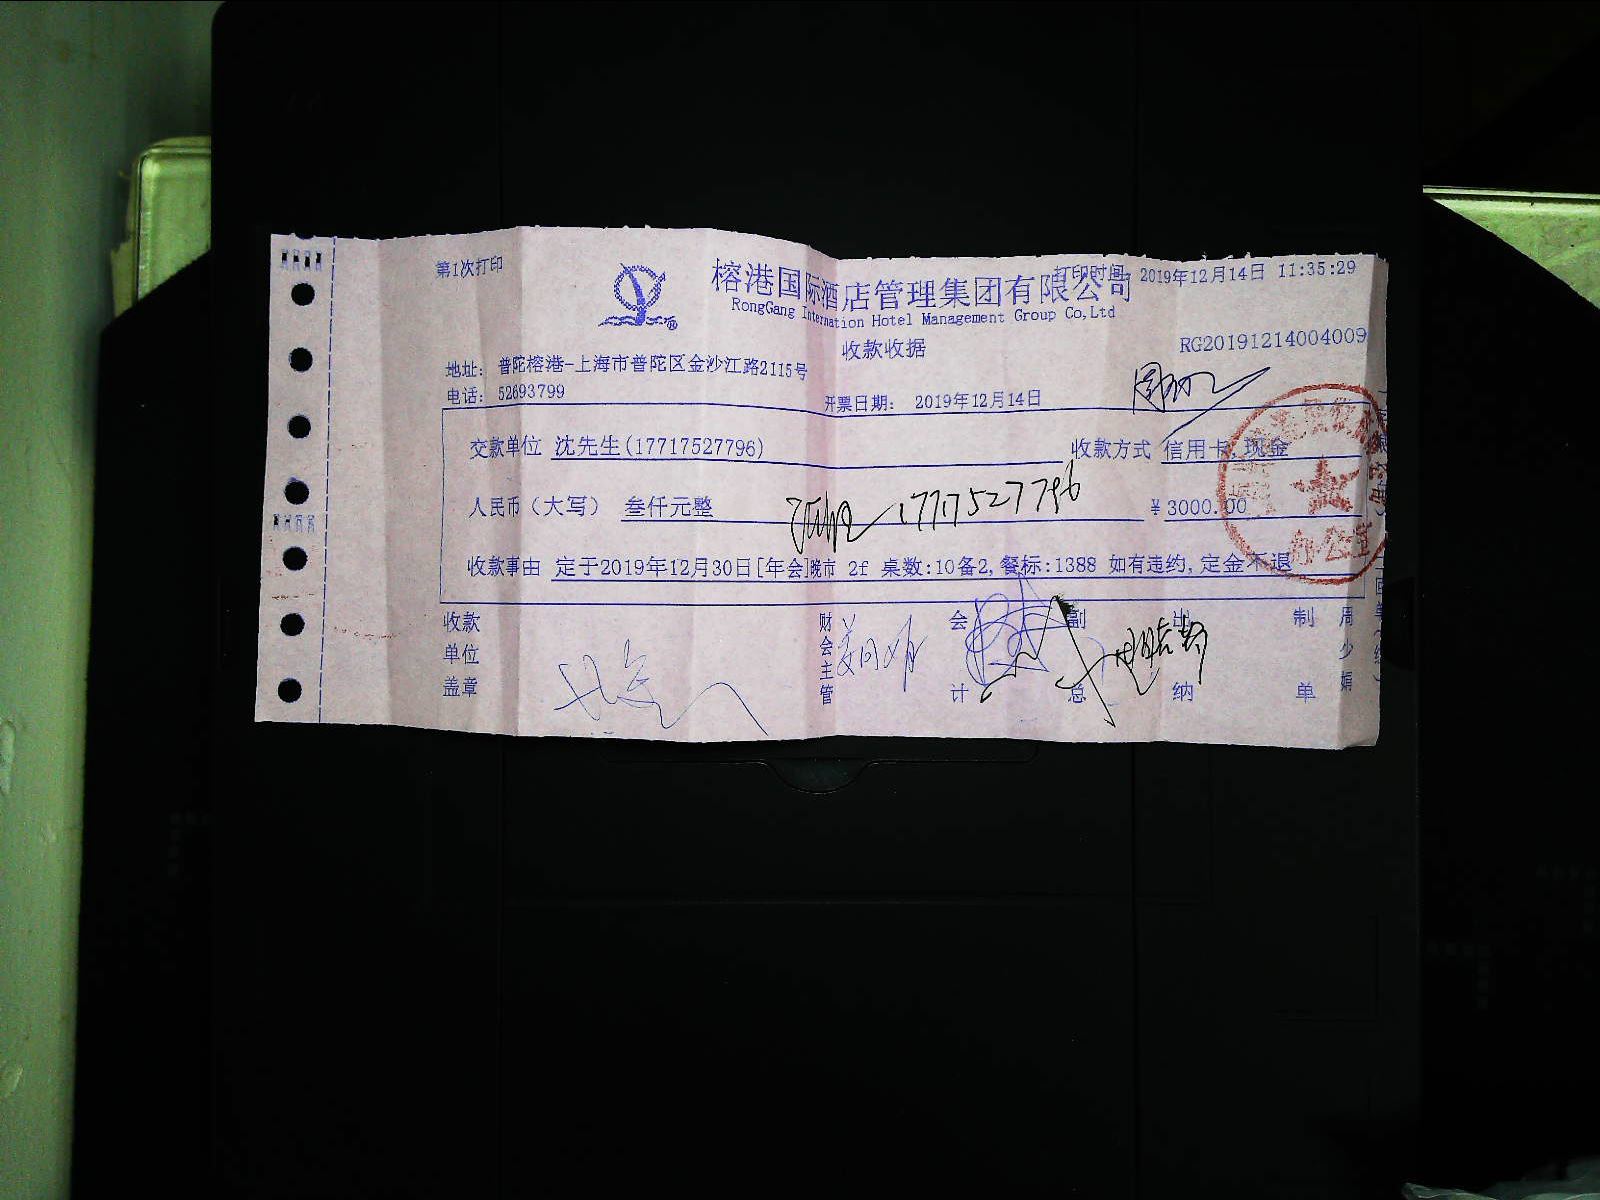 第1次打印
榕港国际酒店管理集团有限公司
打印时间 2019年12月14日 11:35:29
RongGang Internation Hotel Management Group Co,Ltd
收款收据
RG20191214004009
地址: 普陀榕港-上海市普陀区金沙江路2115号
电话: 52693799
开票日期: 2019年12月14日
交款单位 沈先生(17717527796)
收款方式 信用卡,现金
人民币(大写) 叁仟元整
17717527796
¥3000.00
收款事由 定于2019年12月30日[年会]晚市 2f 桌数:10备2,餐标:1388 如有违约,定金不退
办公室
收款单位盖章
财会主管
会计
副总
出纳
制单
周少娟